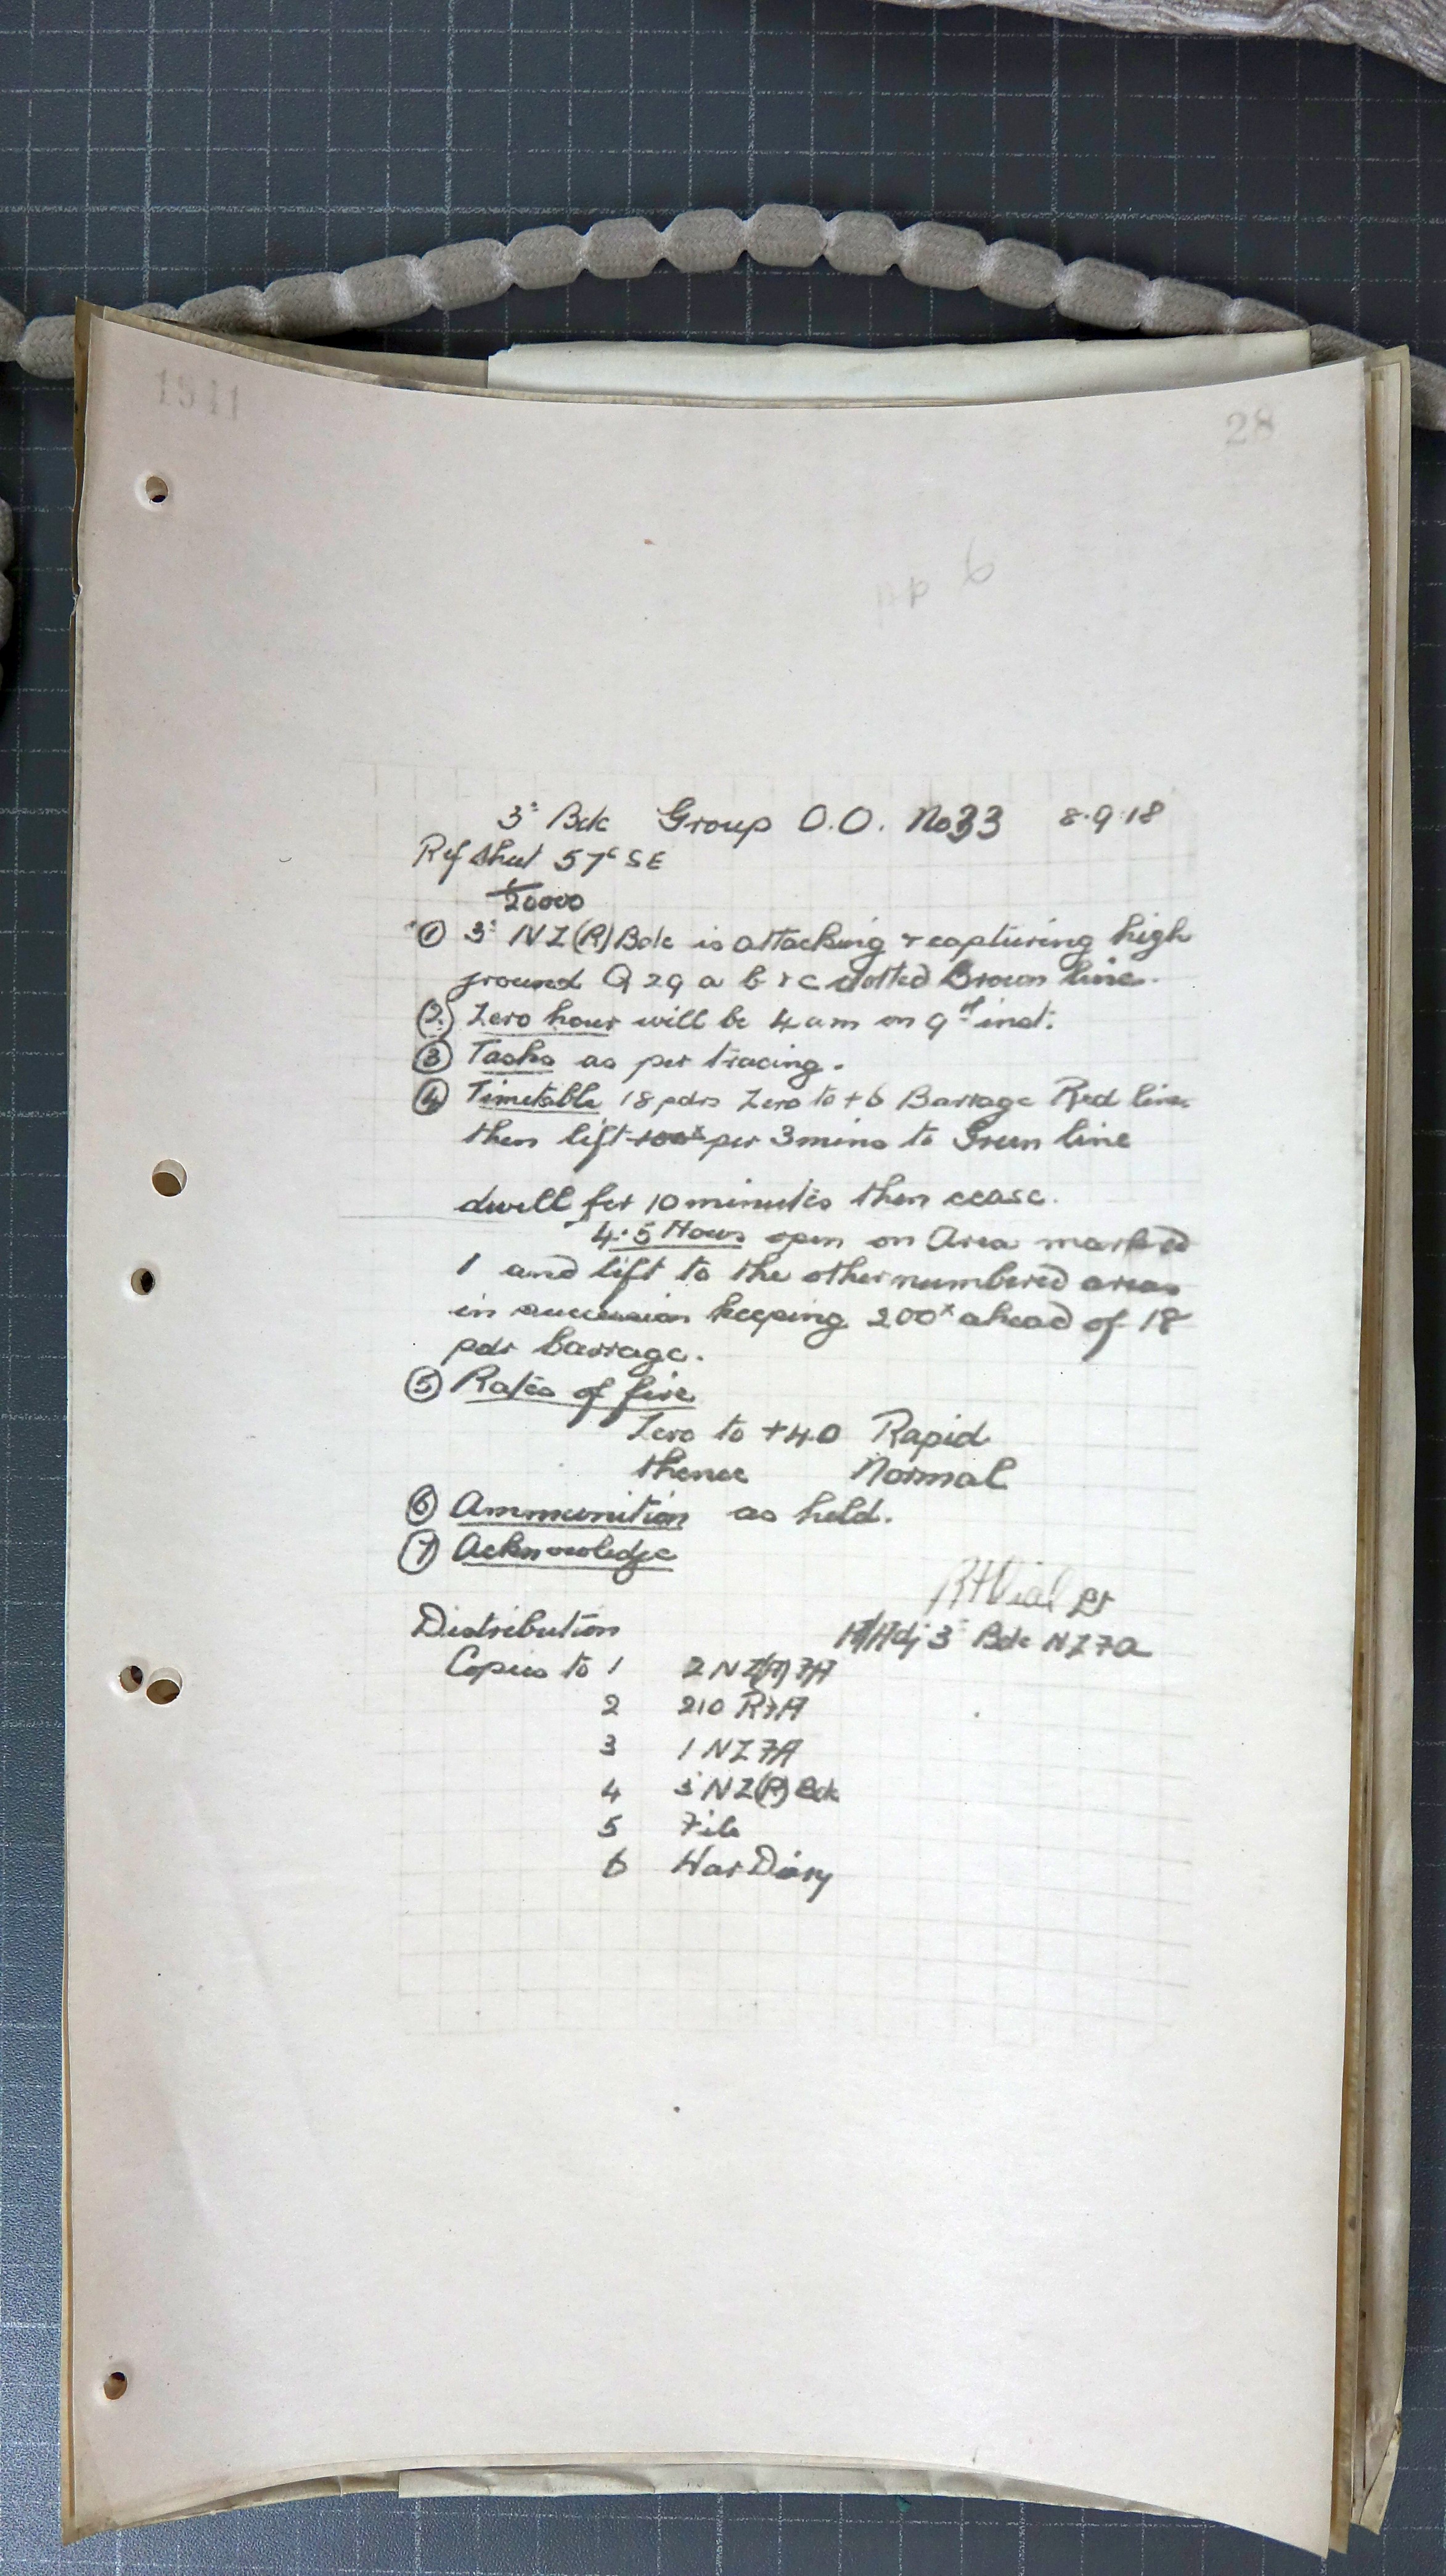 1311
28
3: Bde Group O.O. No 33 8.9.18
Ref Sheet 57c SE
1/20000
① 3: NZ(R) Bde is attacking & capturing high
ground Q 29 a b & c dotted Brown line.
② Zero hour will be 4 am on 9th inst.
③ Tasks as per tracing.
④ Timetable 18 pdrs Zero to +6 Barrage Red line
then lift 100x per 3 mins to Green line
dwell for 10 minutes then cease.
4.5 Hows open on Area marked
1 and lift to the other numbered areas
in succession keeping 200x ahead of 18
pdr barrage.
⑤ Rates of fire
Zero to +40 Rapid
thence Normal
⑥ Ammunition as held.
⑦ Acknowledge
RHVial Lt
A/Adj 3: Bde NZFA
Distribution
Copies to 1 2 NZ(A)FA
2 210 RFA
3 1 NZFA
4 3 NZ(R) Bde
5 File
6 War Diary